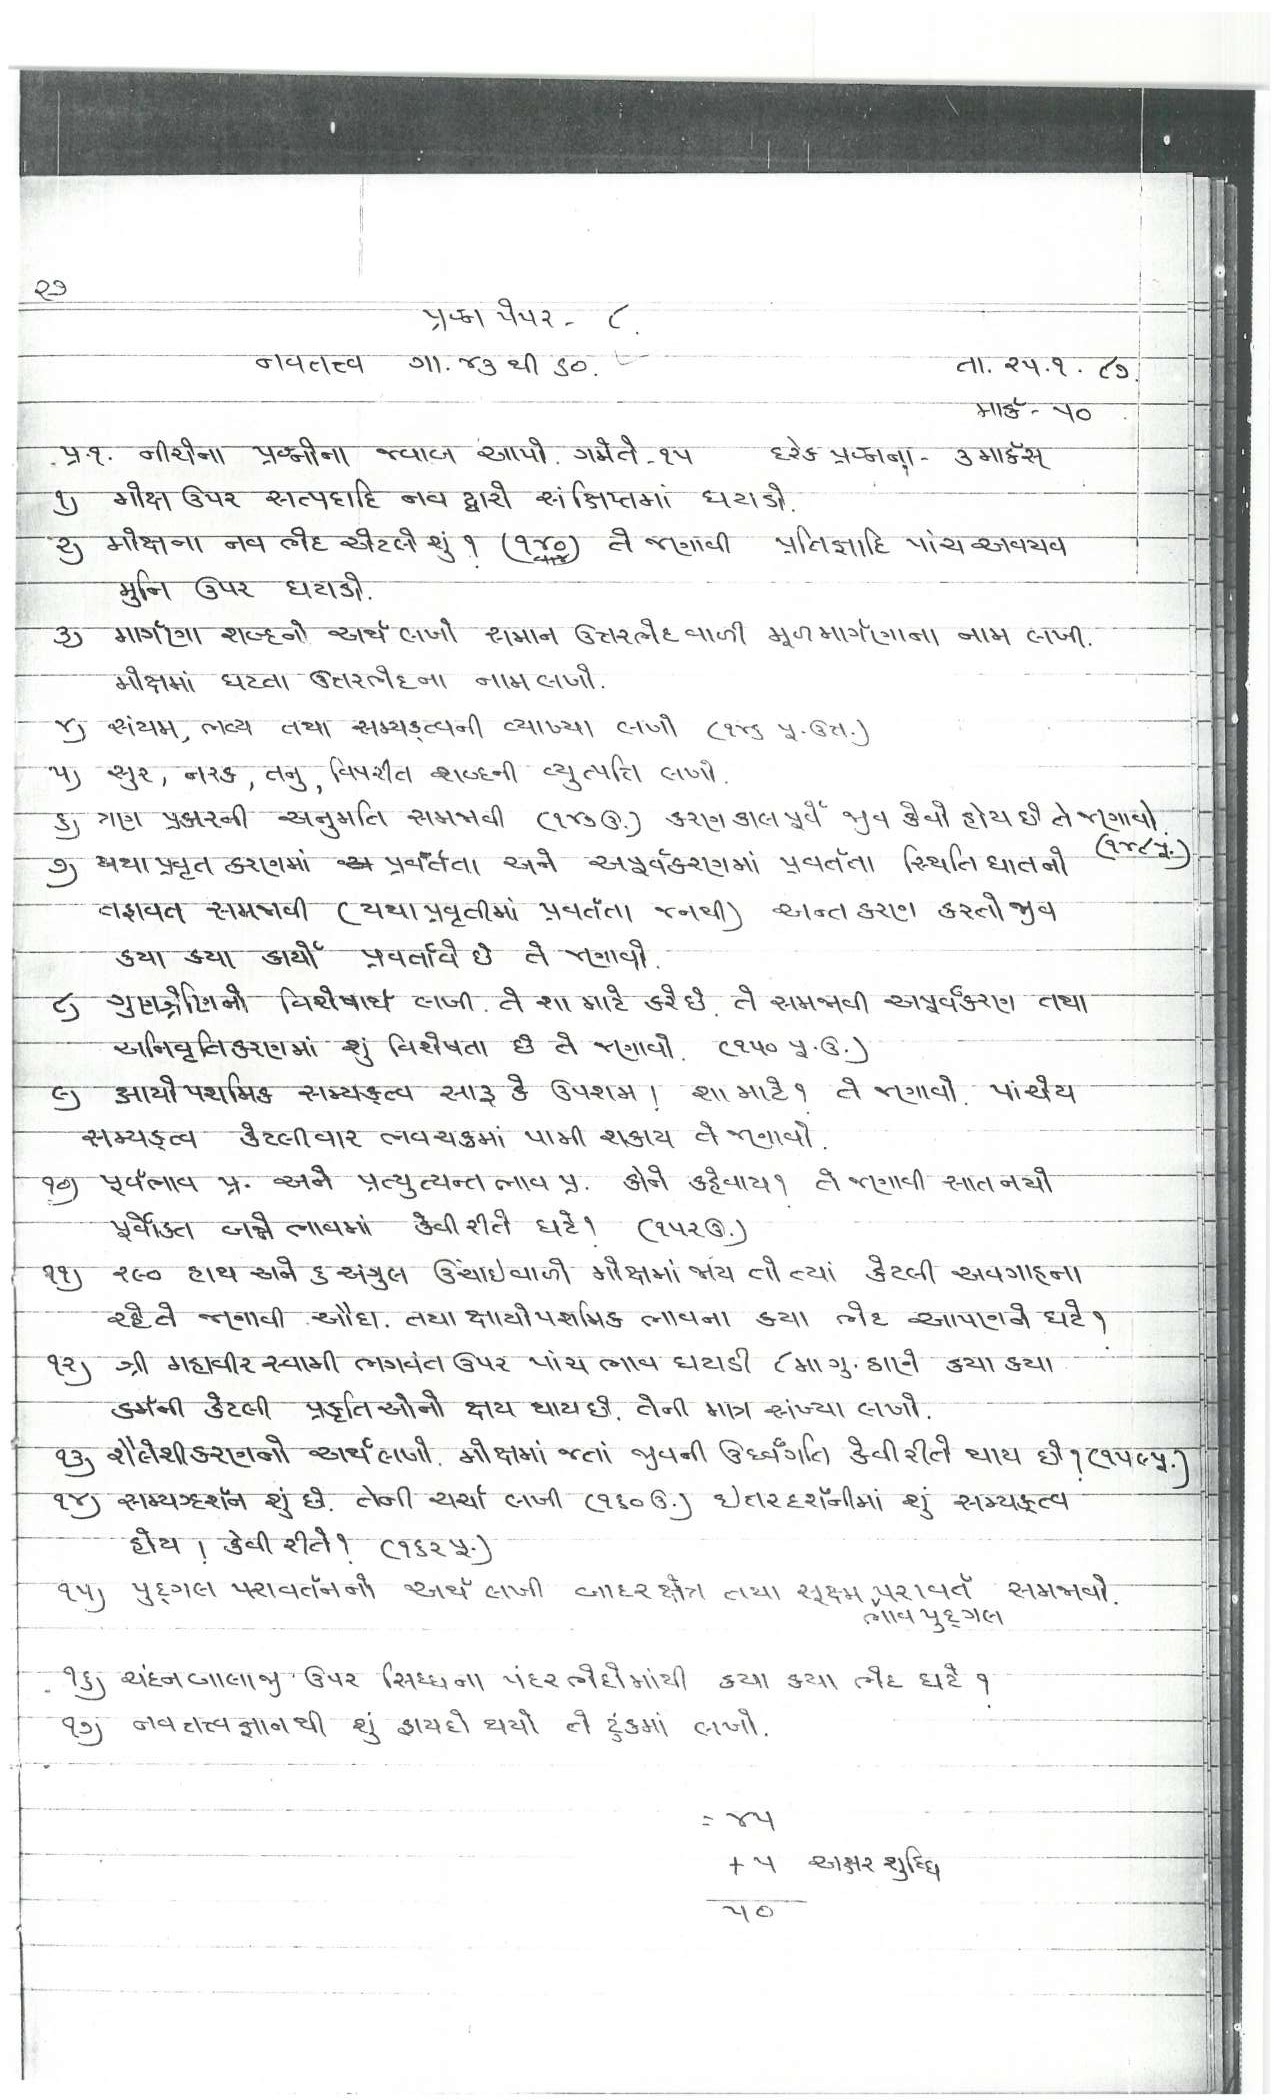 ૨૭
પ્રશ્ન પેપર - ૮.
નવતત્ત્વ ગા. ૪૩ થી ૬૦. તા. ૨૫.૧. ૮૭.
માર્ક - ૫૦
પ્ર.૧. નીચેના પ્રશ્નોના જવાબ આપો. ગમે તે - ૧૫ દરેક પ્રશ્નના - ૩ માર્કસ્
૧) મોક્ષ ઉપર સત્પદાદિ નવ દ્વારો સંક્ષિપ્તમાં ઘટાડો.
૨) મોક્ષના નવ ભેદ એટલે શું ? (૧૪૦) તે જણાવી પ્રતિજ્ઞાદિ પાંચ અવયવ
મુનિ ઉપર ઘટાડો.
૩) માર્ગણા શબ્દનો અર્થ લખો સમાન ઉત્તરભેદવાળી મૂળ માર્ગણાના નામ લખી.
મોક્ષમાં ઘટતા ઉત્તરભેદના નામ લખો.
૪) સંયમ, ભવ્ય તથા સમ્યક્ત્વની વ્યાખ્યા લખો (૧૪૬ પૂ. ઉત્ત.)
૫) સુર, નરક, તનુ, વિપરીત શબ્દની વ્યુત્પત્તિ લખો.
૬) ત્રણ પ્રકારની અનુમતિ સમજાવી (૧૪૭ ઉ.) કરણ કાલ પૂર્વે જીવ કેવો હોય છે તે જણાવો.
(૧૪૮ પૂ.)
૭) યથા પ્રવૃત કરણમાં પ્રવર્તતા અને અપૂર્વકરણમાં પ્રવર્તતા સ્થિતિ ઘાતનો
તફાવત સમજાવી (યથા પ્રવૃતીમાં પ્રવર્તતા જનથી) અન્ત કરણ કરતો જીવ
કયા કયા કાર્યો પ્રવર્તાવે છે તે જણાવો.
૮) ગુણશ્રેણિનો વિશેષાર્થ લખી. તે શા માટે કરે છે. તે સમજાવી અપૂર્વકરણ તથા
અનિવૃતિકરણમાં શું વિશેષતા છે તે જણાવો. (૧૫૦ પૂ. ઉ.)
૯) ક્ષાયોપશમિક સમ્યક્ત્વ સારૂ કે ઉપશમ ! શા માટે ? તે જણાવો. પાંચેય
સમ્યક્ત્વ કેટલીવાર ભવચક્રમાં પામી શકાય તે જણાવો.
૧૦) પૂર્વભાવ પ્ર. અને પ્રત્યુત્પન્ન ભાવ પ્ર. કોને કહેવાય ? તે જણાવી સાત નયો
પૂર્વોક્ત બન્ને ભાવમાં કેવી રીતે ઘટે ? (૧૫૨ ઉ.)
૧૧) ૨૯૦ હાથ અને ૬ અંગુલ ઉંચાઇવાળો મોક્ષમાં જાય તો ત્યાં કેટલી અવગાહના
રહે તે જણાવી ઔદા. તથા ક્ષાયોપશમિક ભાવના કયા ભેદ આપણને ઘટે ?
૧૨) શ્રી મહાવીર સ્વામી ભગવંત ઉપર પાંચ ભાવ ઘટાડી ૮મા ગુ. ઠાણે કયા કયા
કર્મની કેટલી પ્રકૃતિઓનો ક્ષય થાય છે. તેની માત્ર સંખ્યા લખો.
૧૩) શૈલેશીકરણનો અર્થ લખો. મોક્ષમાં જતાં જીવની ઉર્ધ્વગતિ કેવી રીતે થાય છે ? (૧૫૯ પૂ.)
૧૪) સમ્યગ્દર્શન શું છે. તેની ચર્ચા લખી (૧૬૦ ઉ.) ઇતરદર્શનીમાં શું સમ્યક્ત્વ
હોય ! કેવી રીતે ? (૧૬૨ પૂ.)
૧૫) પુદ્ગલ પરાવર્તનનો અર્થ લખી બાદર ક્ષેત્ર તથા સૂક્ષ્મ ભાવ પુદ્ગલ પરાવર્ત સમજાવો.
૧૬) ચંદનબાલાજી ઉપર સિધ્ધના પંદર ભેદોમાંથી કયા કયા ભેદ ઘટે ?
૧૭) નવતત્ત્વ જ્ઞાનથી શું ફાયદો થયો તે ટુંકમાં લખો.
= ૪૫
+ ૫ અક્ષર શુધ્ધિ
૫૦